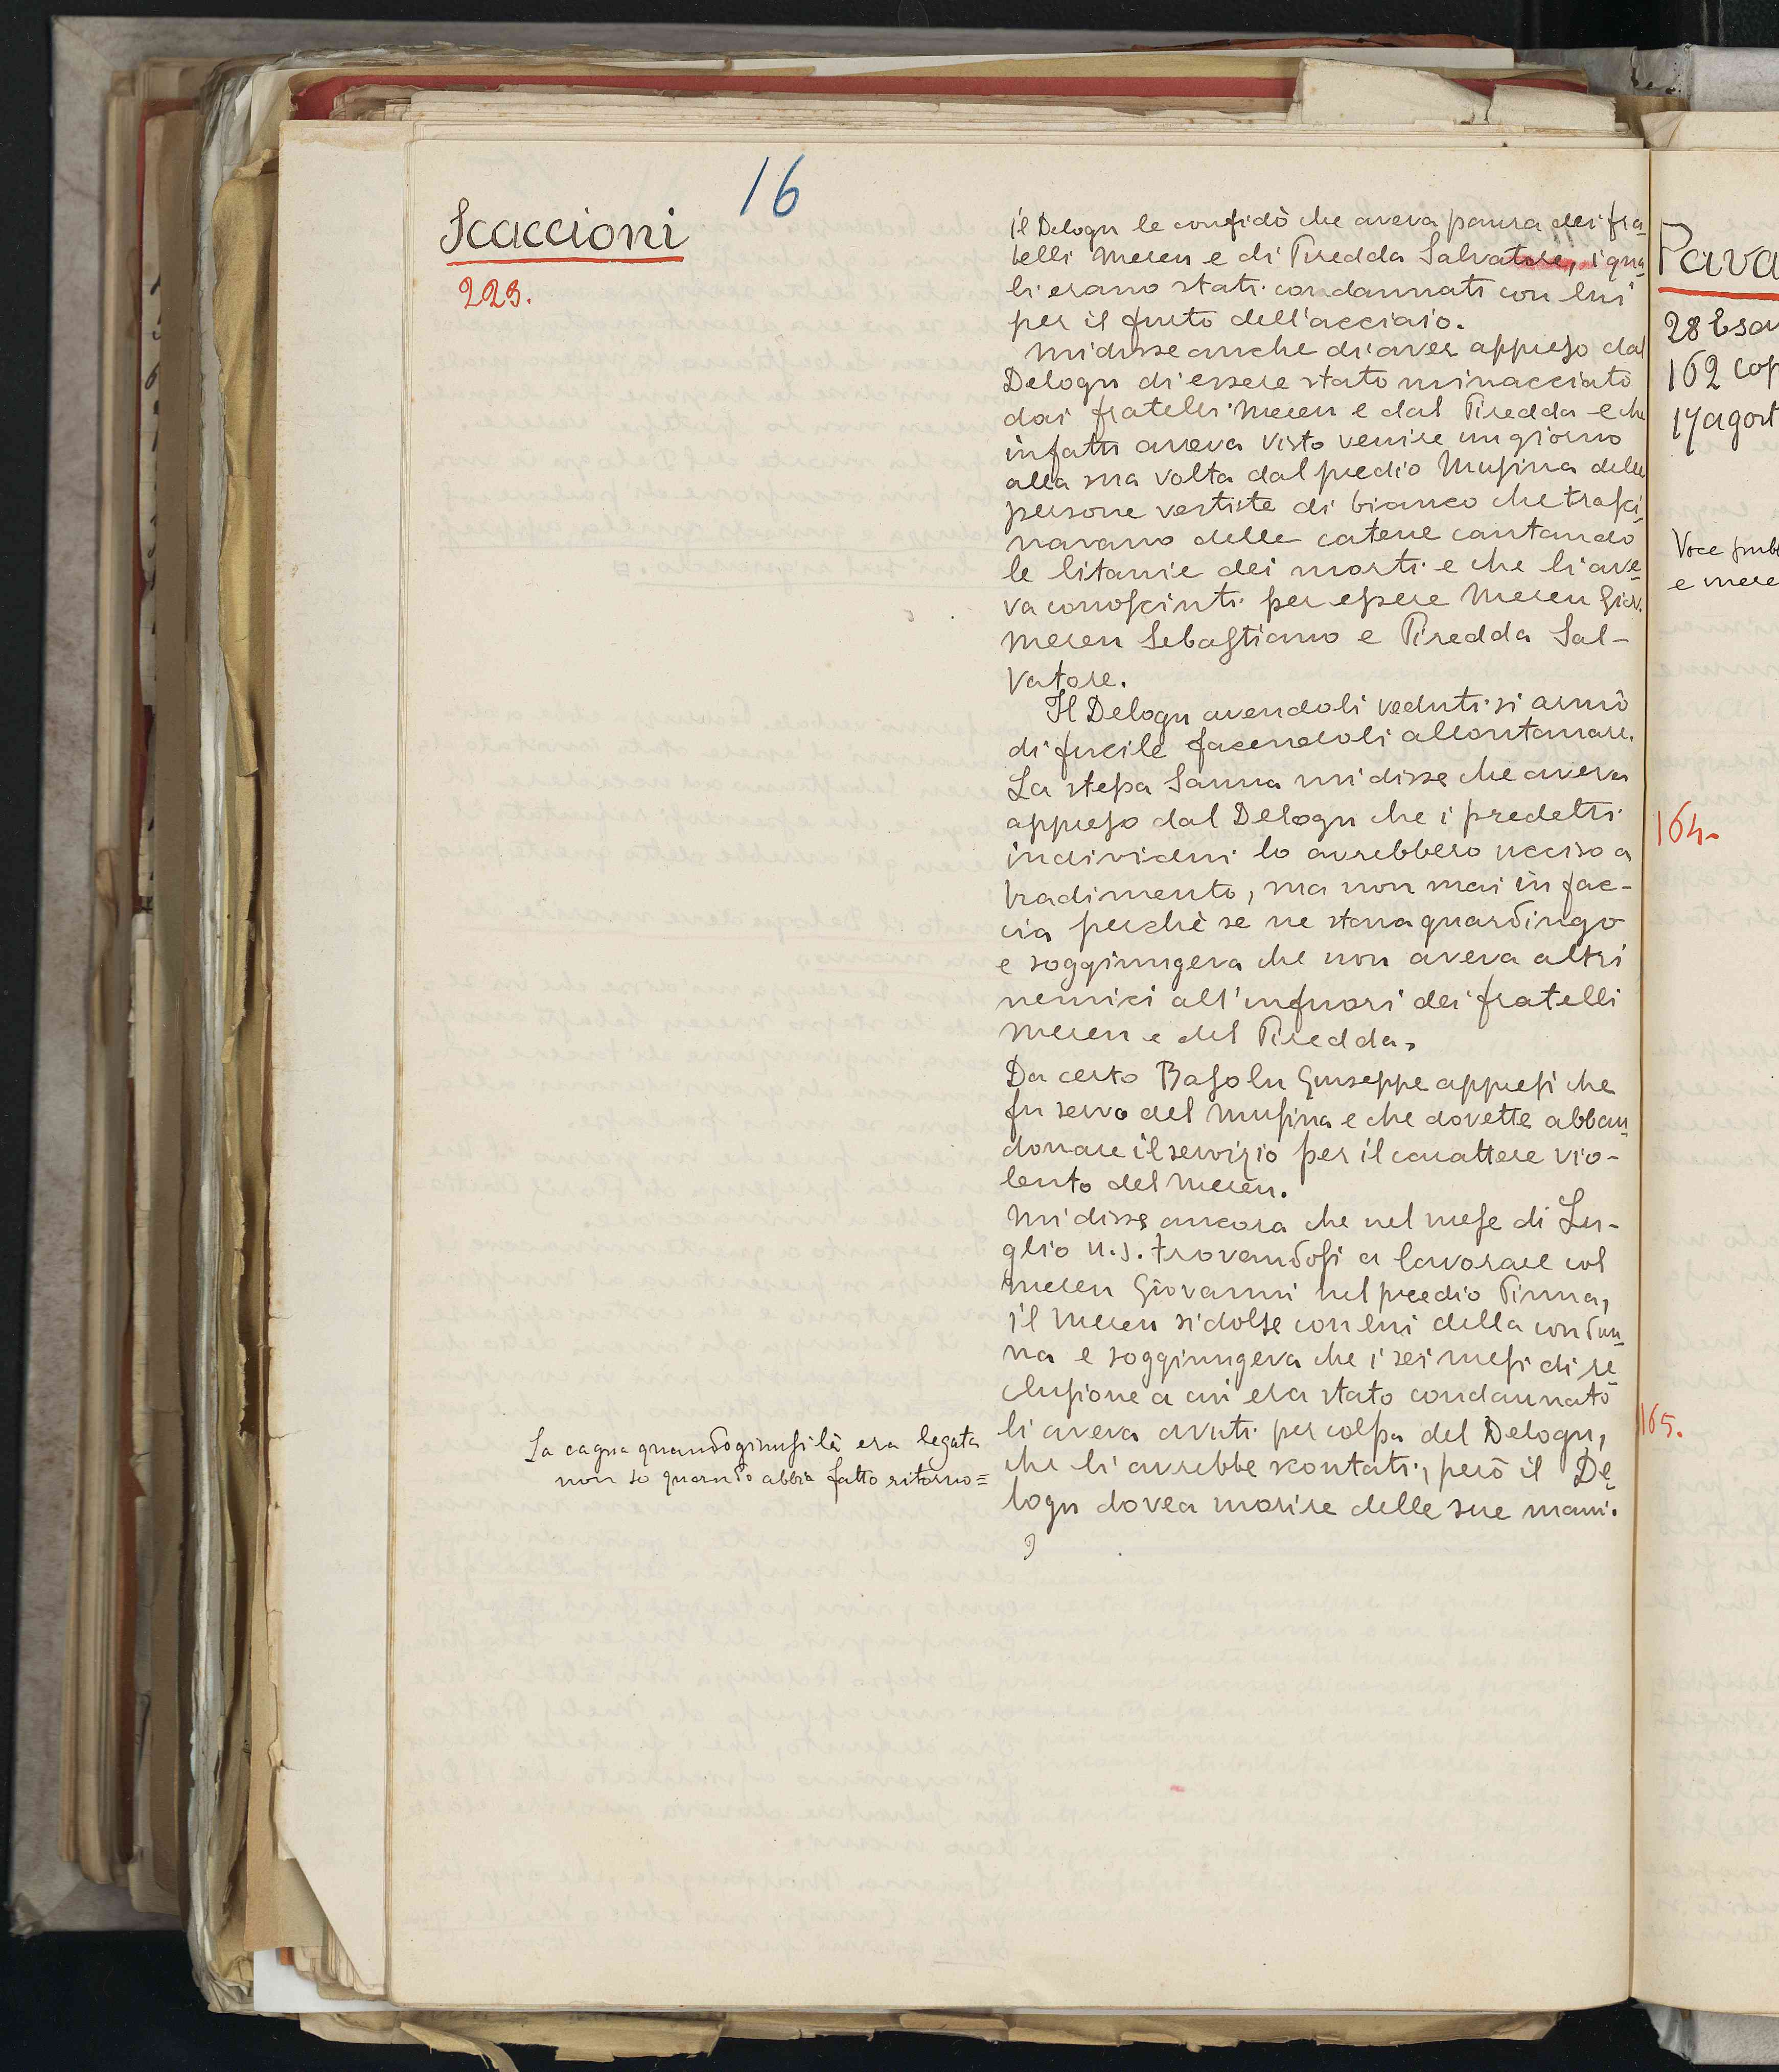 16
Scaccioni
223.
il Delogu le confidò che aveva paura dei fra-
telli Mereu e di Piredda Salvatore, i qua-
li erano stati condannati con lui
per il furto dell'acciaio.
Mi disse anche di aver appreso dal
Delogu di essere stato minacciato
dai fratelli Mereu e dal Piredda e che
infatti aveva visto venire un giorno
alla sua volta dal predio Musina delle
persone vestite di bianco che trasci-
navano delle catene cantando
le litanie dei morti e che li ave-
va conosciuti per essere Mereu Giov.
Mereu Sebastiano e Piredda Sal-
vatore.
Il Delogu avendoli veduti si armò
di fucile facendoli allontanare.
La stessa Sanna mi disse che aveva
appreso dal Delogu che i predetti
individui lo avrebbero ucciso a
tradimento, ma non mai in fac-
cia perchè se ne stava guardingo
e soggiungeva che non aveva altri
nemici all'infuori dei fratelli
Mereu e del Piredda.
Da certo Basolu Giuseppe appresi che
fu servo del Musina e che dovette abban-
donare il servizio per il carattere vio-
lento del Mereu.
Mi disse ancora che nel mese di Lu-
glio u.s. trovandosi a lavorare col
Mereu Giovanni nel predio Pinna,
il Mereu si dolse con lui della condan-
na e soggiungeva che i sei mesi di re-
clusione a cui era stato condannato
li aveva avuti per colpa del Delogu,
che li avrebbe scontati, però il De-
logu dovea morire delle sue mani.
La cagna quando giunsi là era legata
non so quando abbia fatto ritorno=
Pava
28
162
17 agost
Voce pubb
e mere
164-
165.